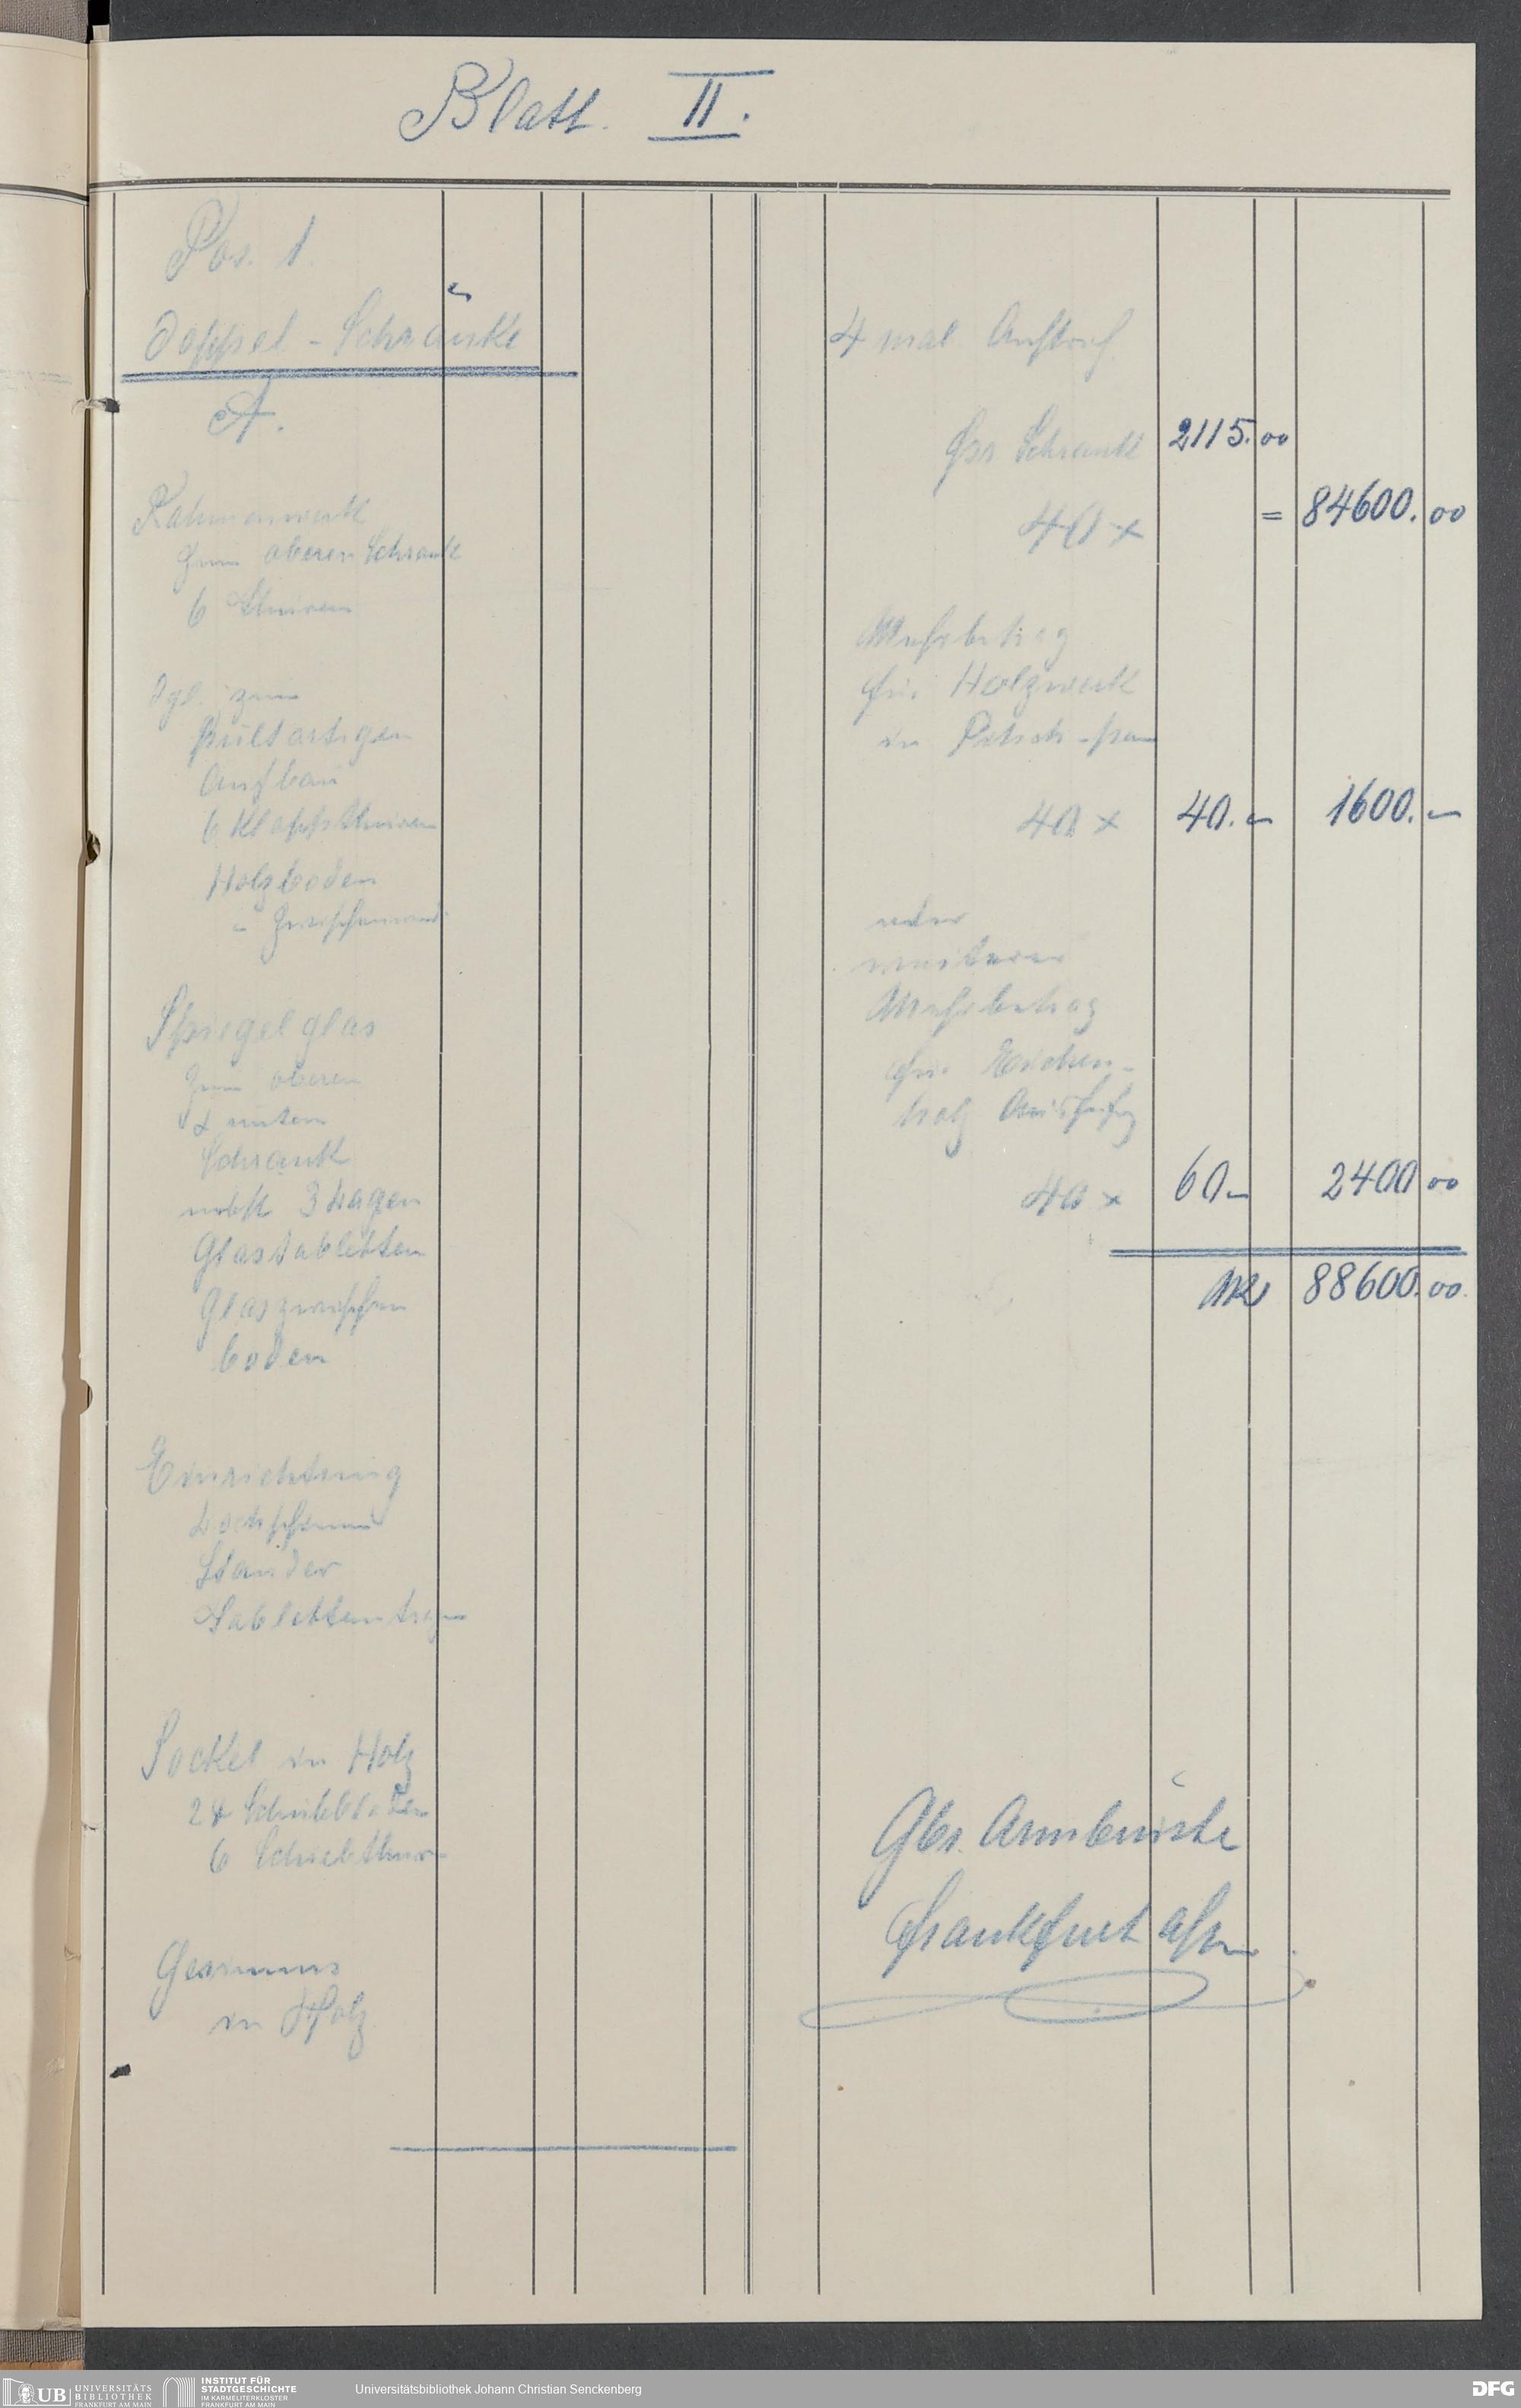 Blatt. II.
Pos. 1.
Doppel-Schränke
A.
Rahmenwerk
zum oberen Schrank
6 Thüren
Dgl. zum
pultartigen
Aufbau
6 Klappthüren
Holzboden
" Zwischenwand
Spiegelglas
zum oberen
& untern
Schrank
nebst 3 Lagen
Glastabletten
Glaszwischen
boden
Einrichtung
Ständer
Tablettenträger
Sockel in Holz
24 Schubladen
6 Schiebthüren
Gesimms
in Holz
4 mal
pro Schrank 2115.00
40 x = 84600.00
Mehrbetrag
für Holzwerk
in Pitsch-pin
40 x 40.— 1600.—
oder
weiterer
Mehrbetrag
für Eichen-
holz Ausführg
40 x 60— 2400 00
Mk 88600.00
Gbr. Armbrüster
Frankfurt a/m.
UB UNIVERSITÄTS
BIBLIOTHEK
FRANKFURT AM MAIN
INSTITUT FÜR
STADTGESCHICHTE
IM KARMELITERKLOSTER
FRANKFURT AM MAIN
Universitätsbibliothek Johann Christian Senckenberg
DFG